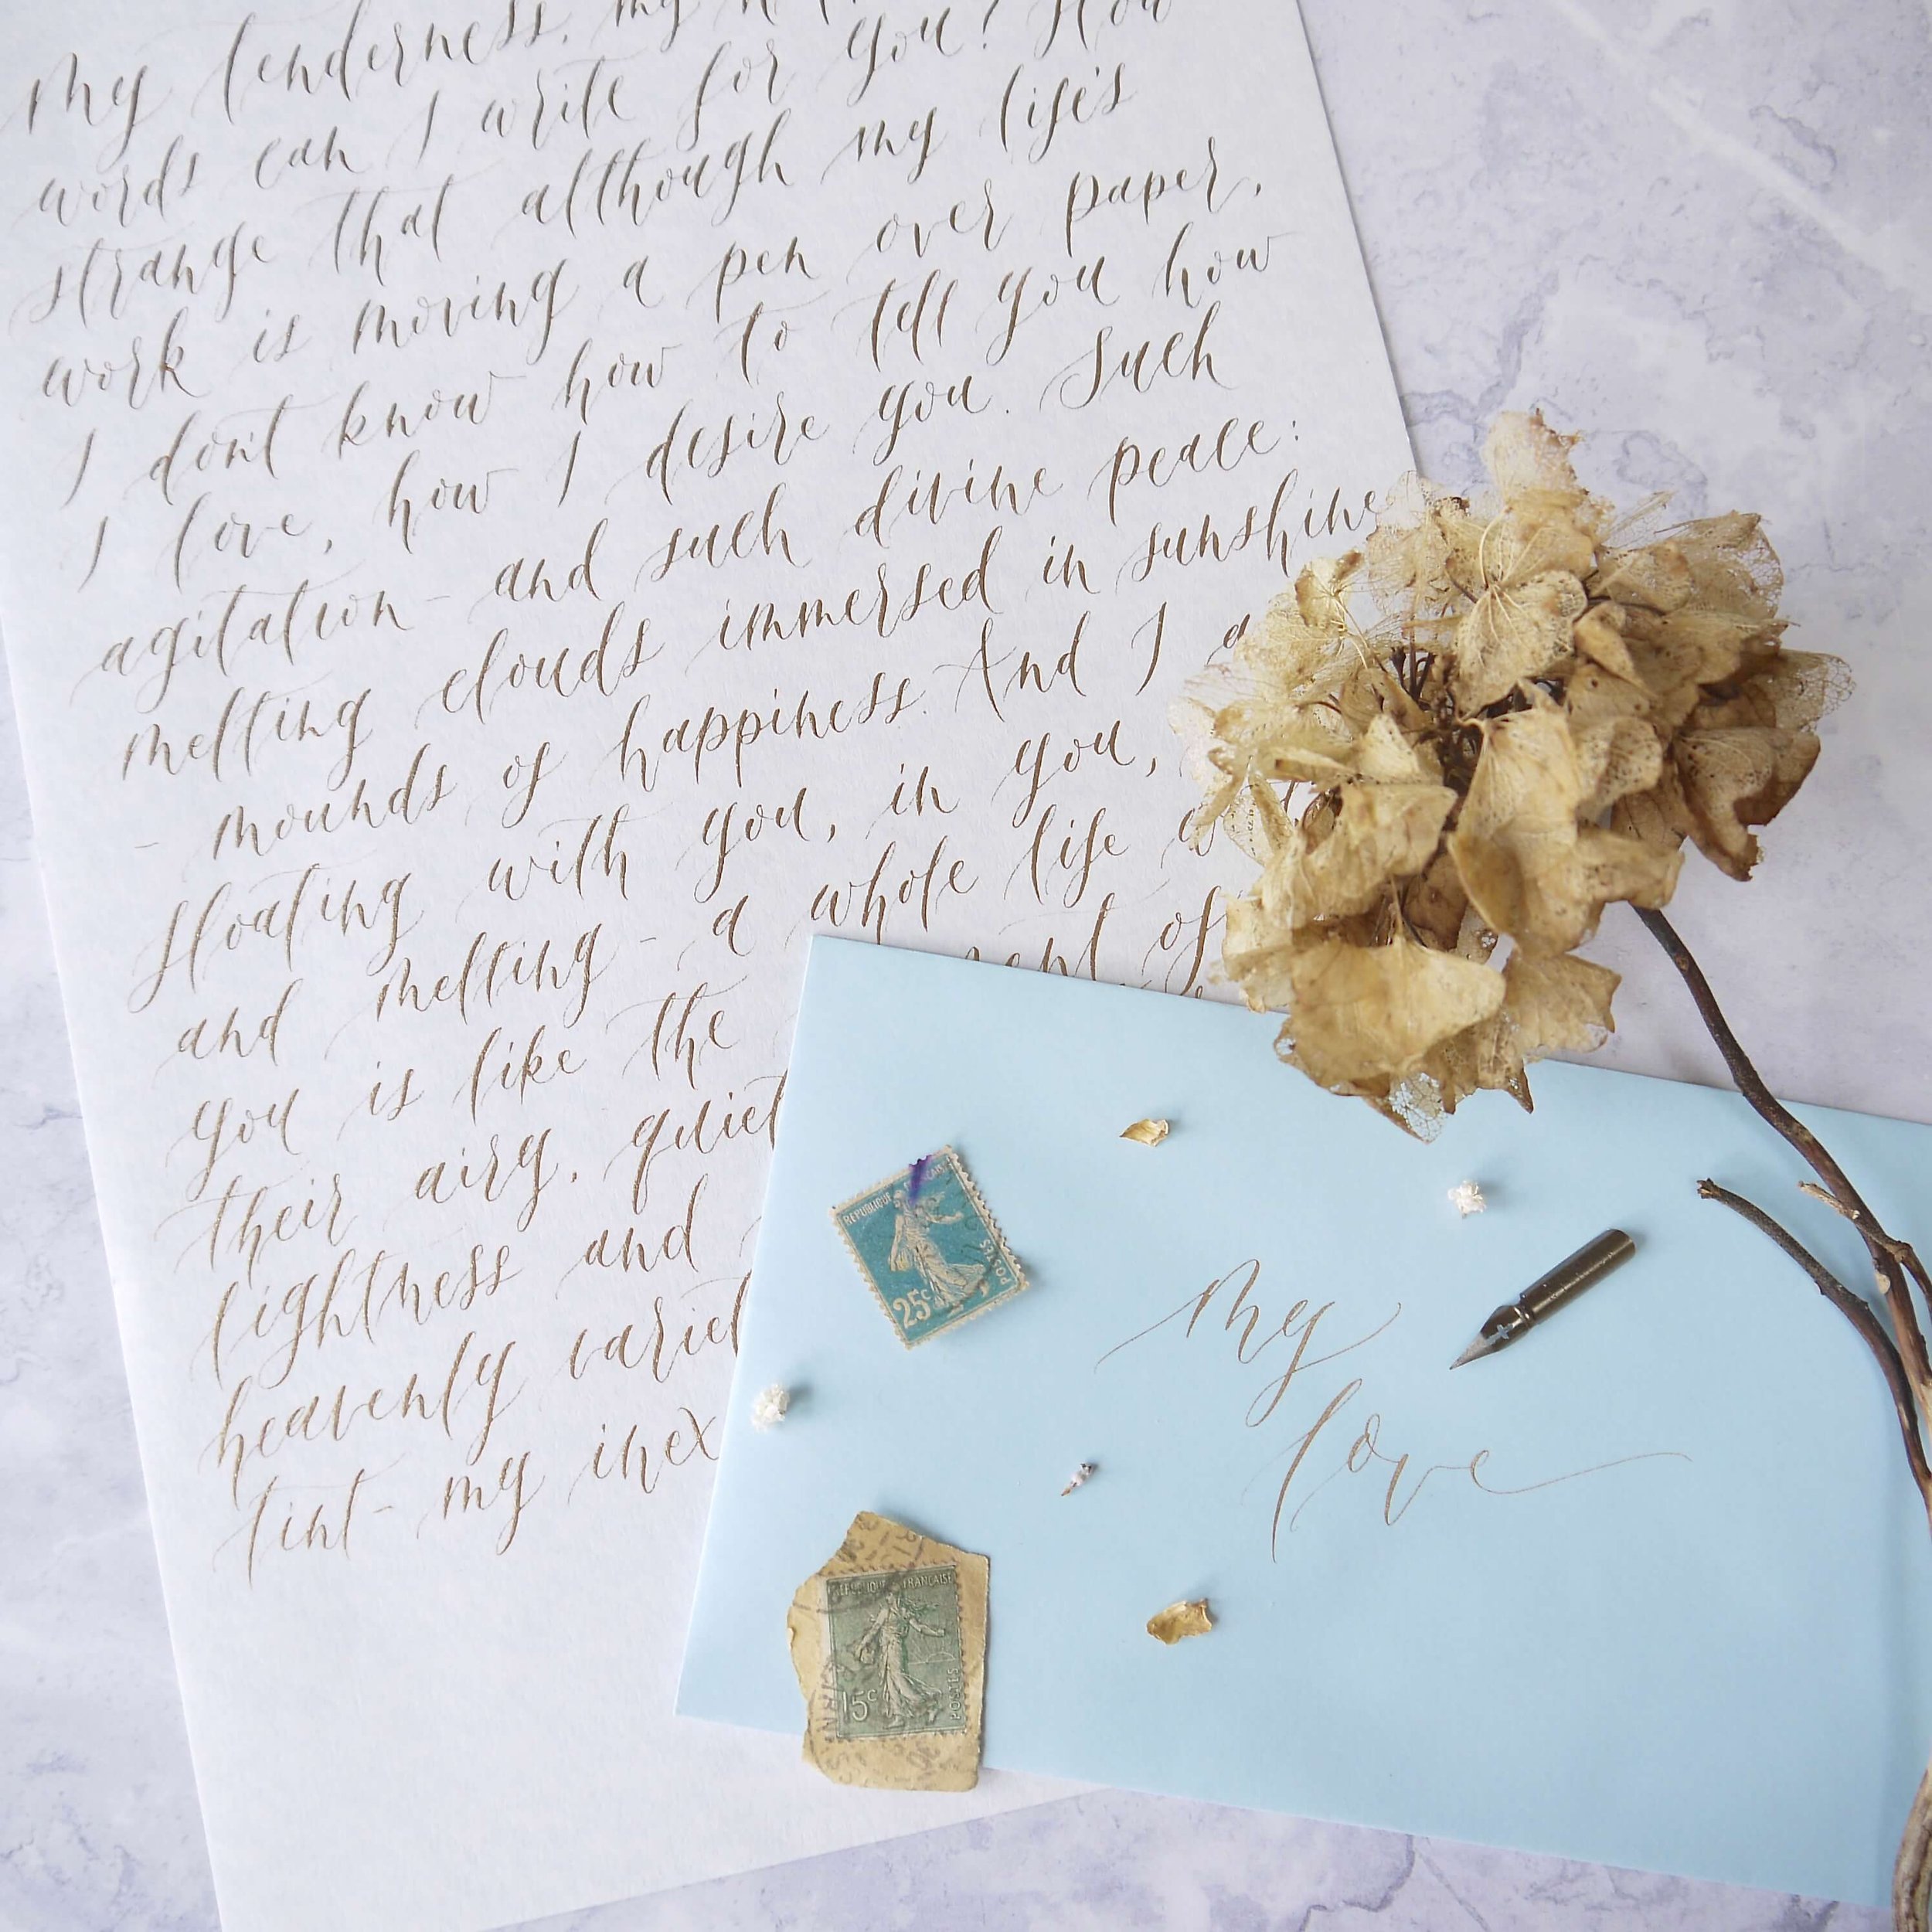 My tenderness, my
words can I write for you? How
strange that although my life's
work is moving a pen over paper,
I don't know how to tell you how
I love, how I desire you. Such
agitation - and such divine peace:
melting clouds immersed in sunshine
- mounds of happiness. And I
floating with you, in you,
and melting - a whole life
you is like the
of
their airy, quiet
lightness and
heavenly
tint - my
REPUBLIQUE
25c
POSTES
my
love
FRANCAISE
15c
POSTES